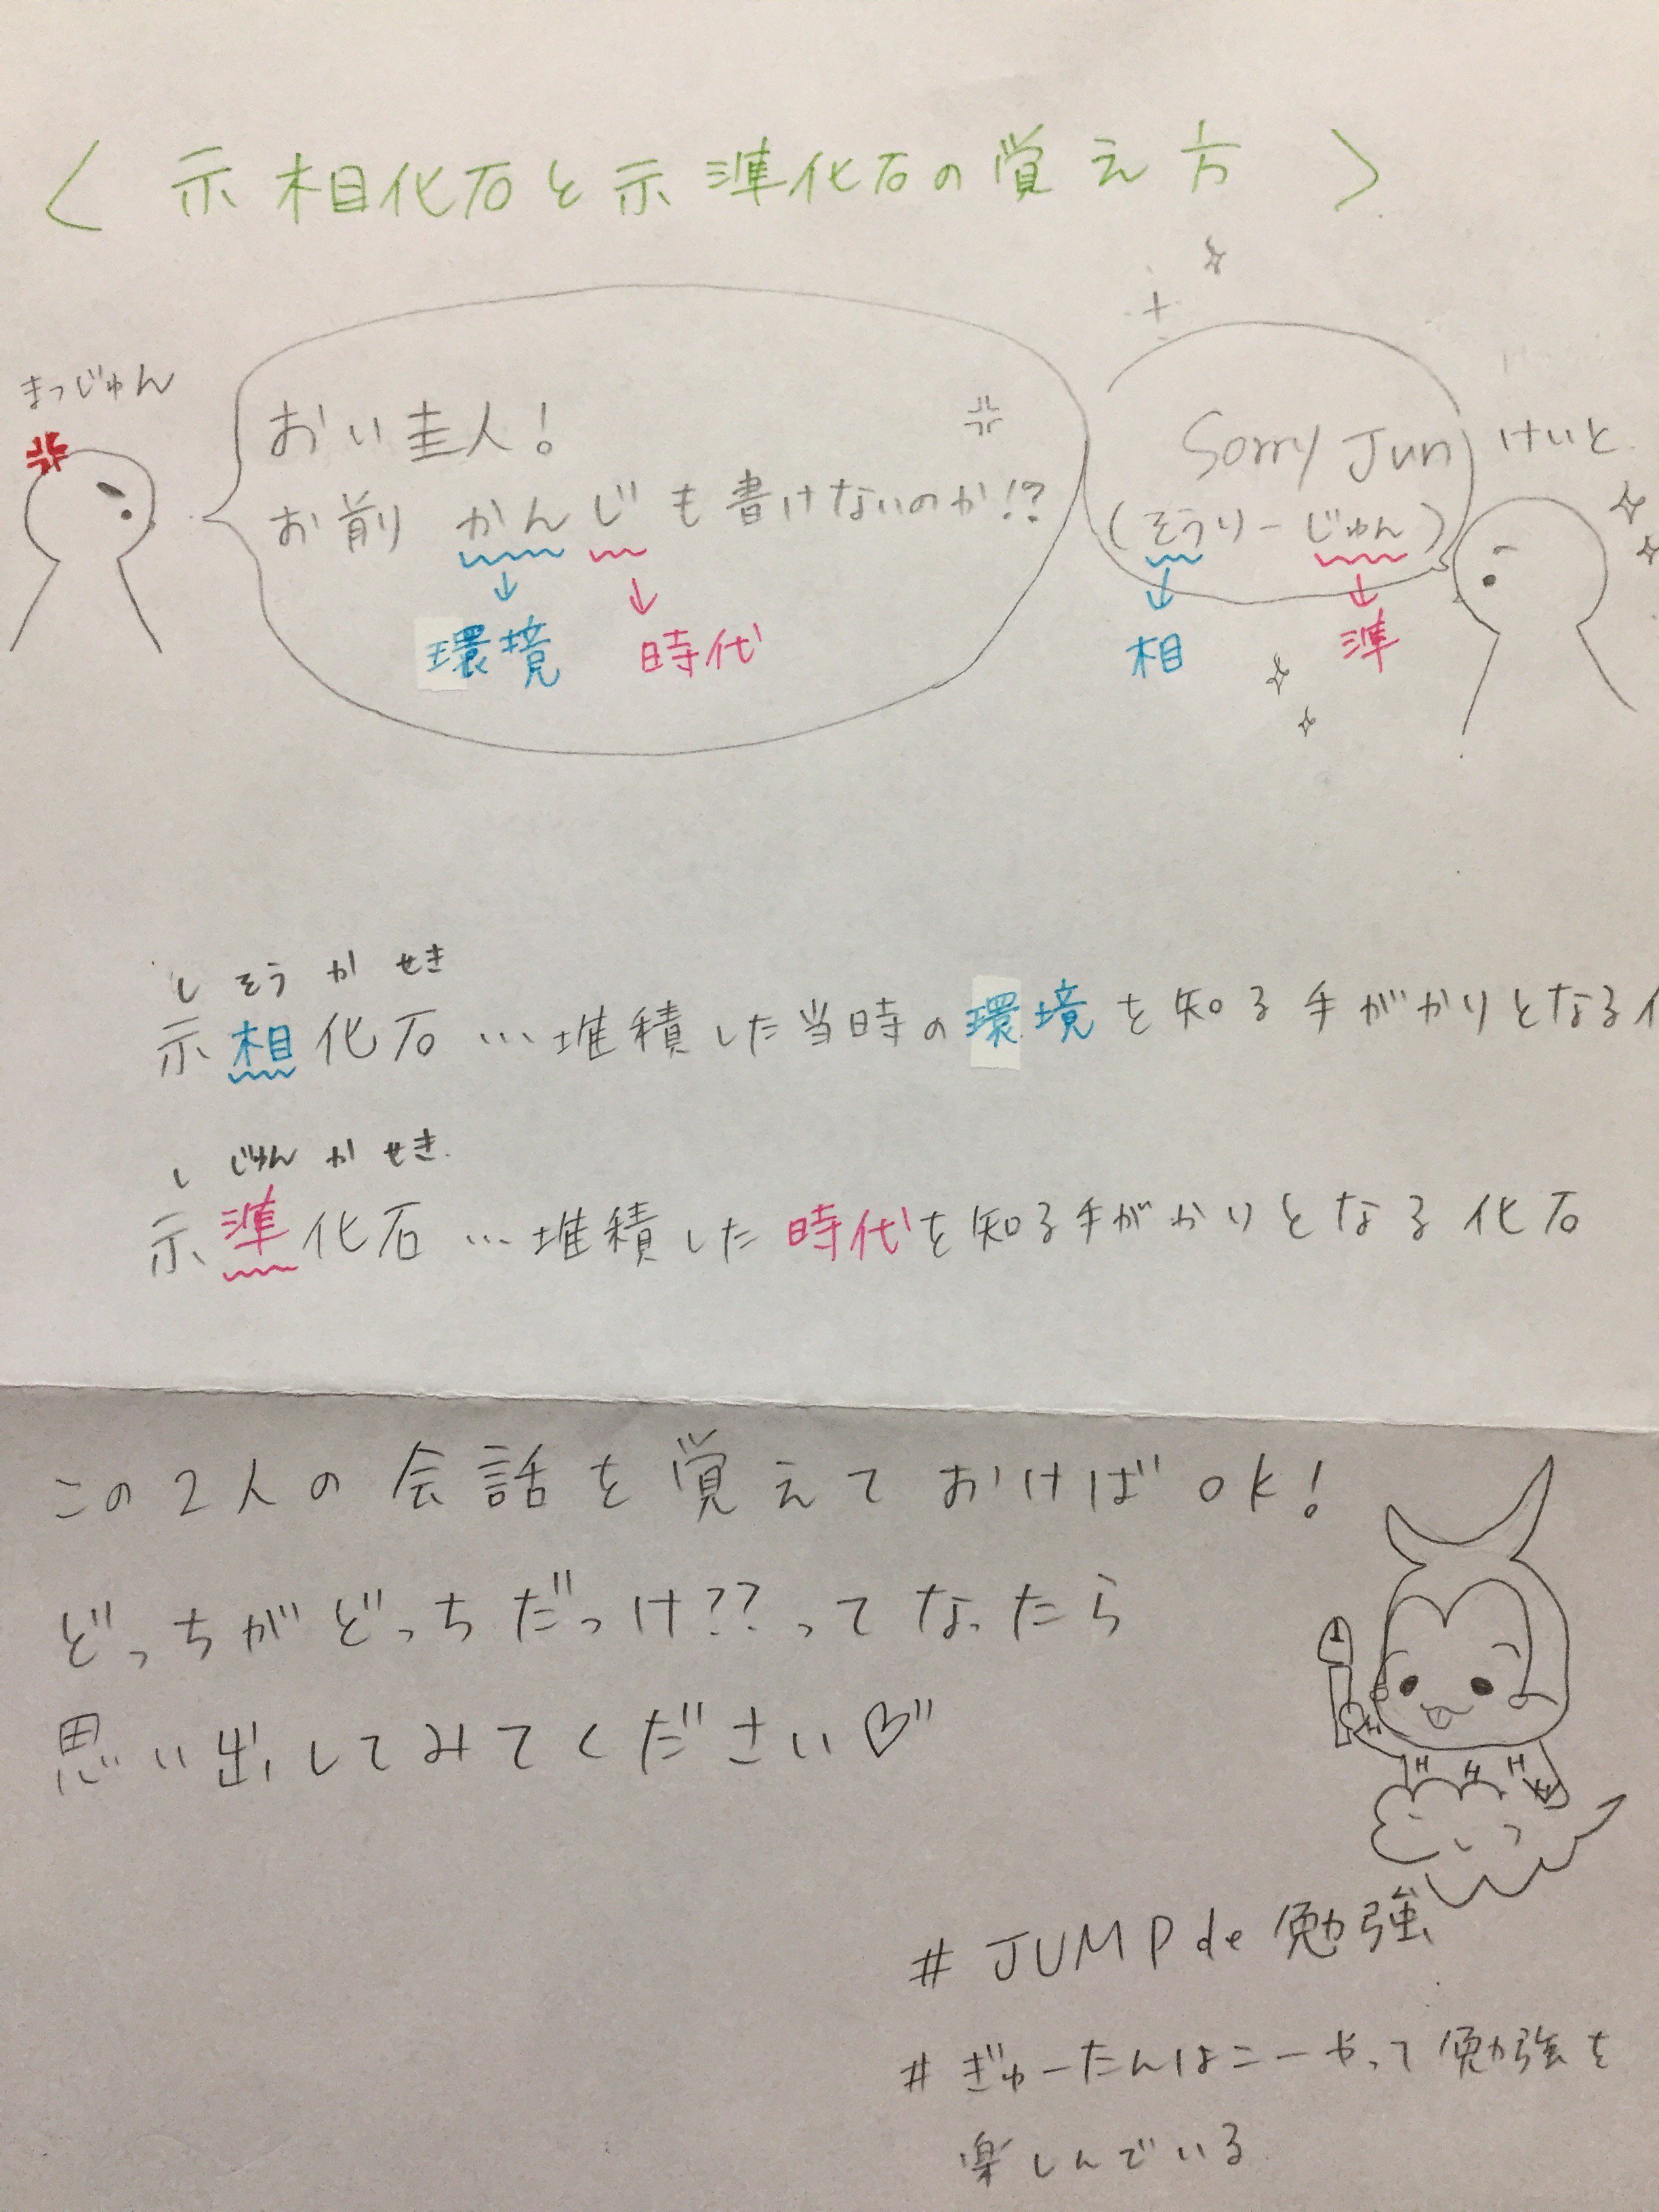 〈 示相化石と示準化石の覚え方 〉
まつじゅん
おい圭人!
お前 かんじも書けないのか!?
環境 時代
Sorry Jun
(そうりーじゅん)
相 準
けいと
し そう か せき
示相化石…堆積した当時の環境を知る手がかりとなる
し じゅん か せき
示準化石…堆積した時代を知る手がかりとなる化石
この2人の会話を覚えておけばOK!
どっちがどっちだっけ??ってなったら
思い出してみてください♡"
H H H
#JUMPde勉強
#ぎゅーたんはこーやって勉強を
楽しんでいる